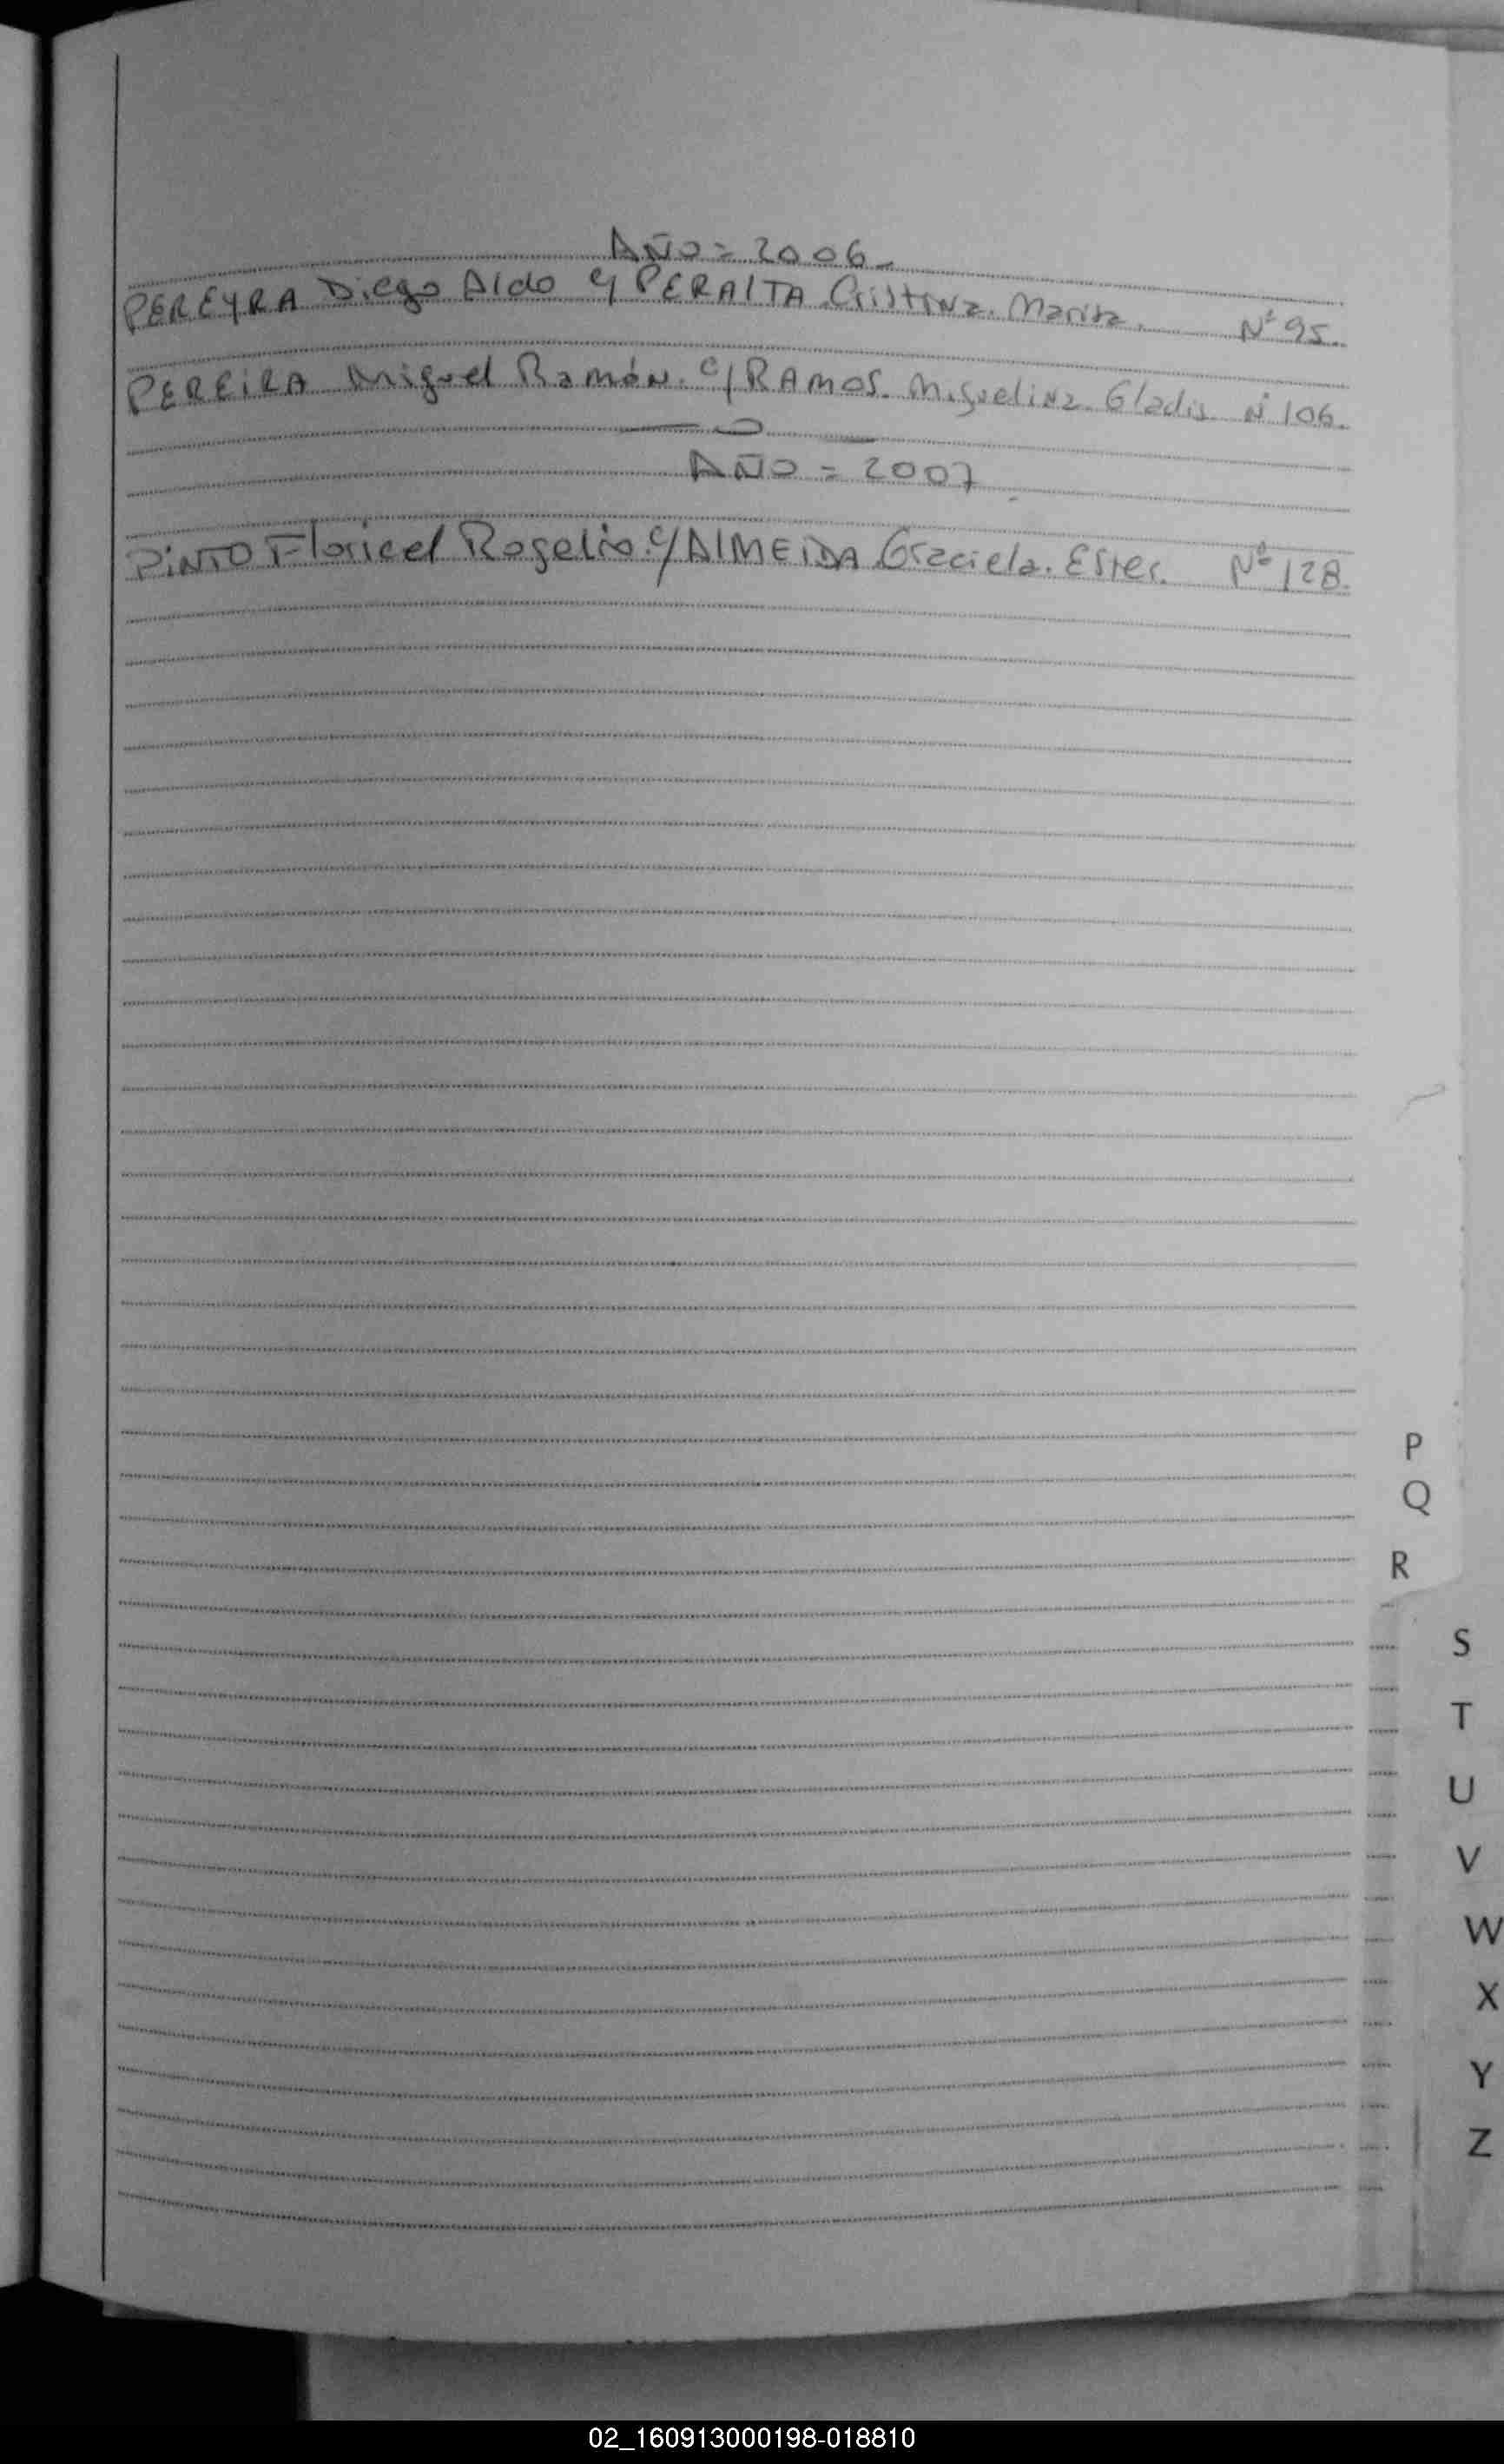 AÑO = 2006.-
PEREYRA Diego Aldo c/ PERALTA Cristina. Marita. Nº 95.
PEREIRA Miguel Ramón. c/ RAMOS. Miguelina Gladis Nº 106.
AÑO = 2007
PINTO Floricel Rogelio c/ ALMEIDA Graciela. Ester. Nº 128.
P
Q
R
S
T
U
V
W
X
Y
Z
02_160913000198-018810